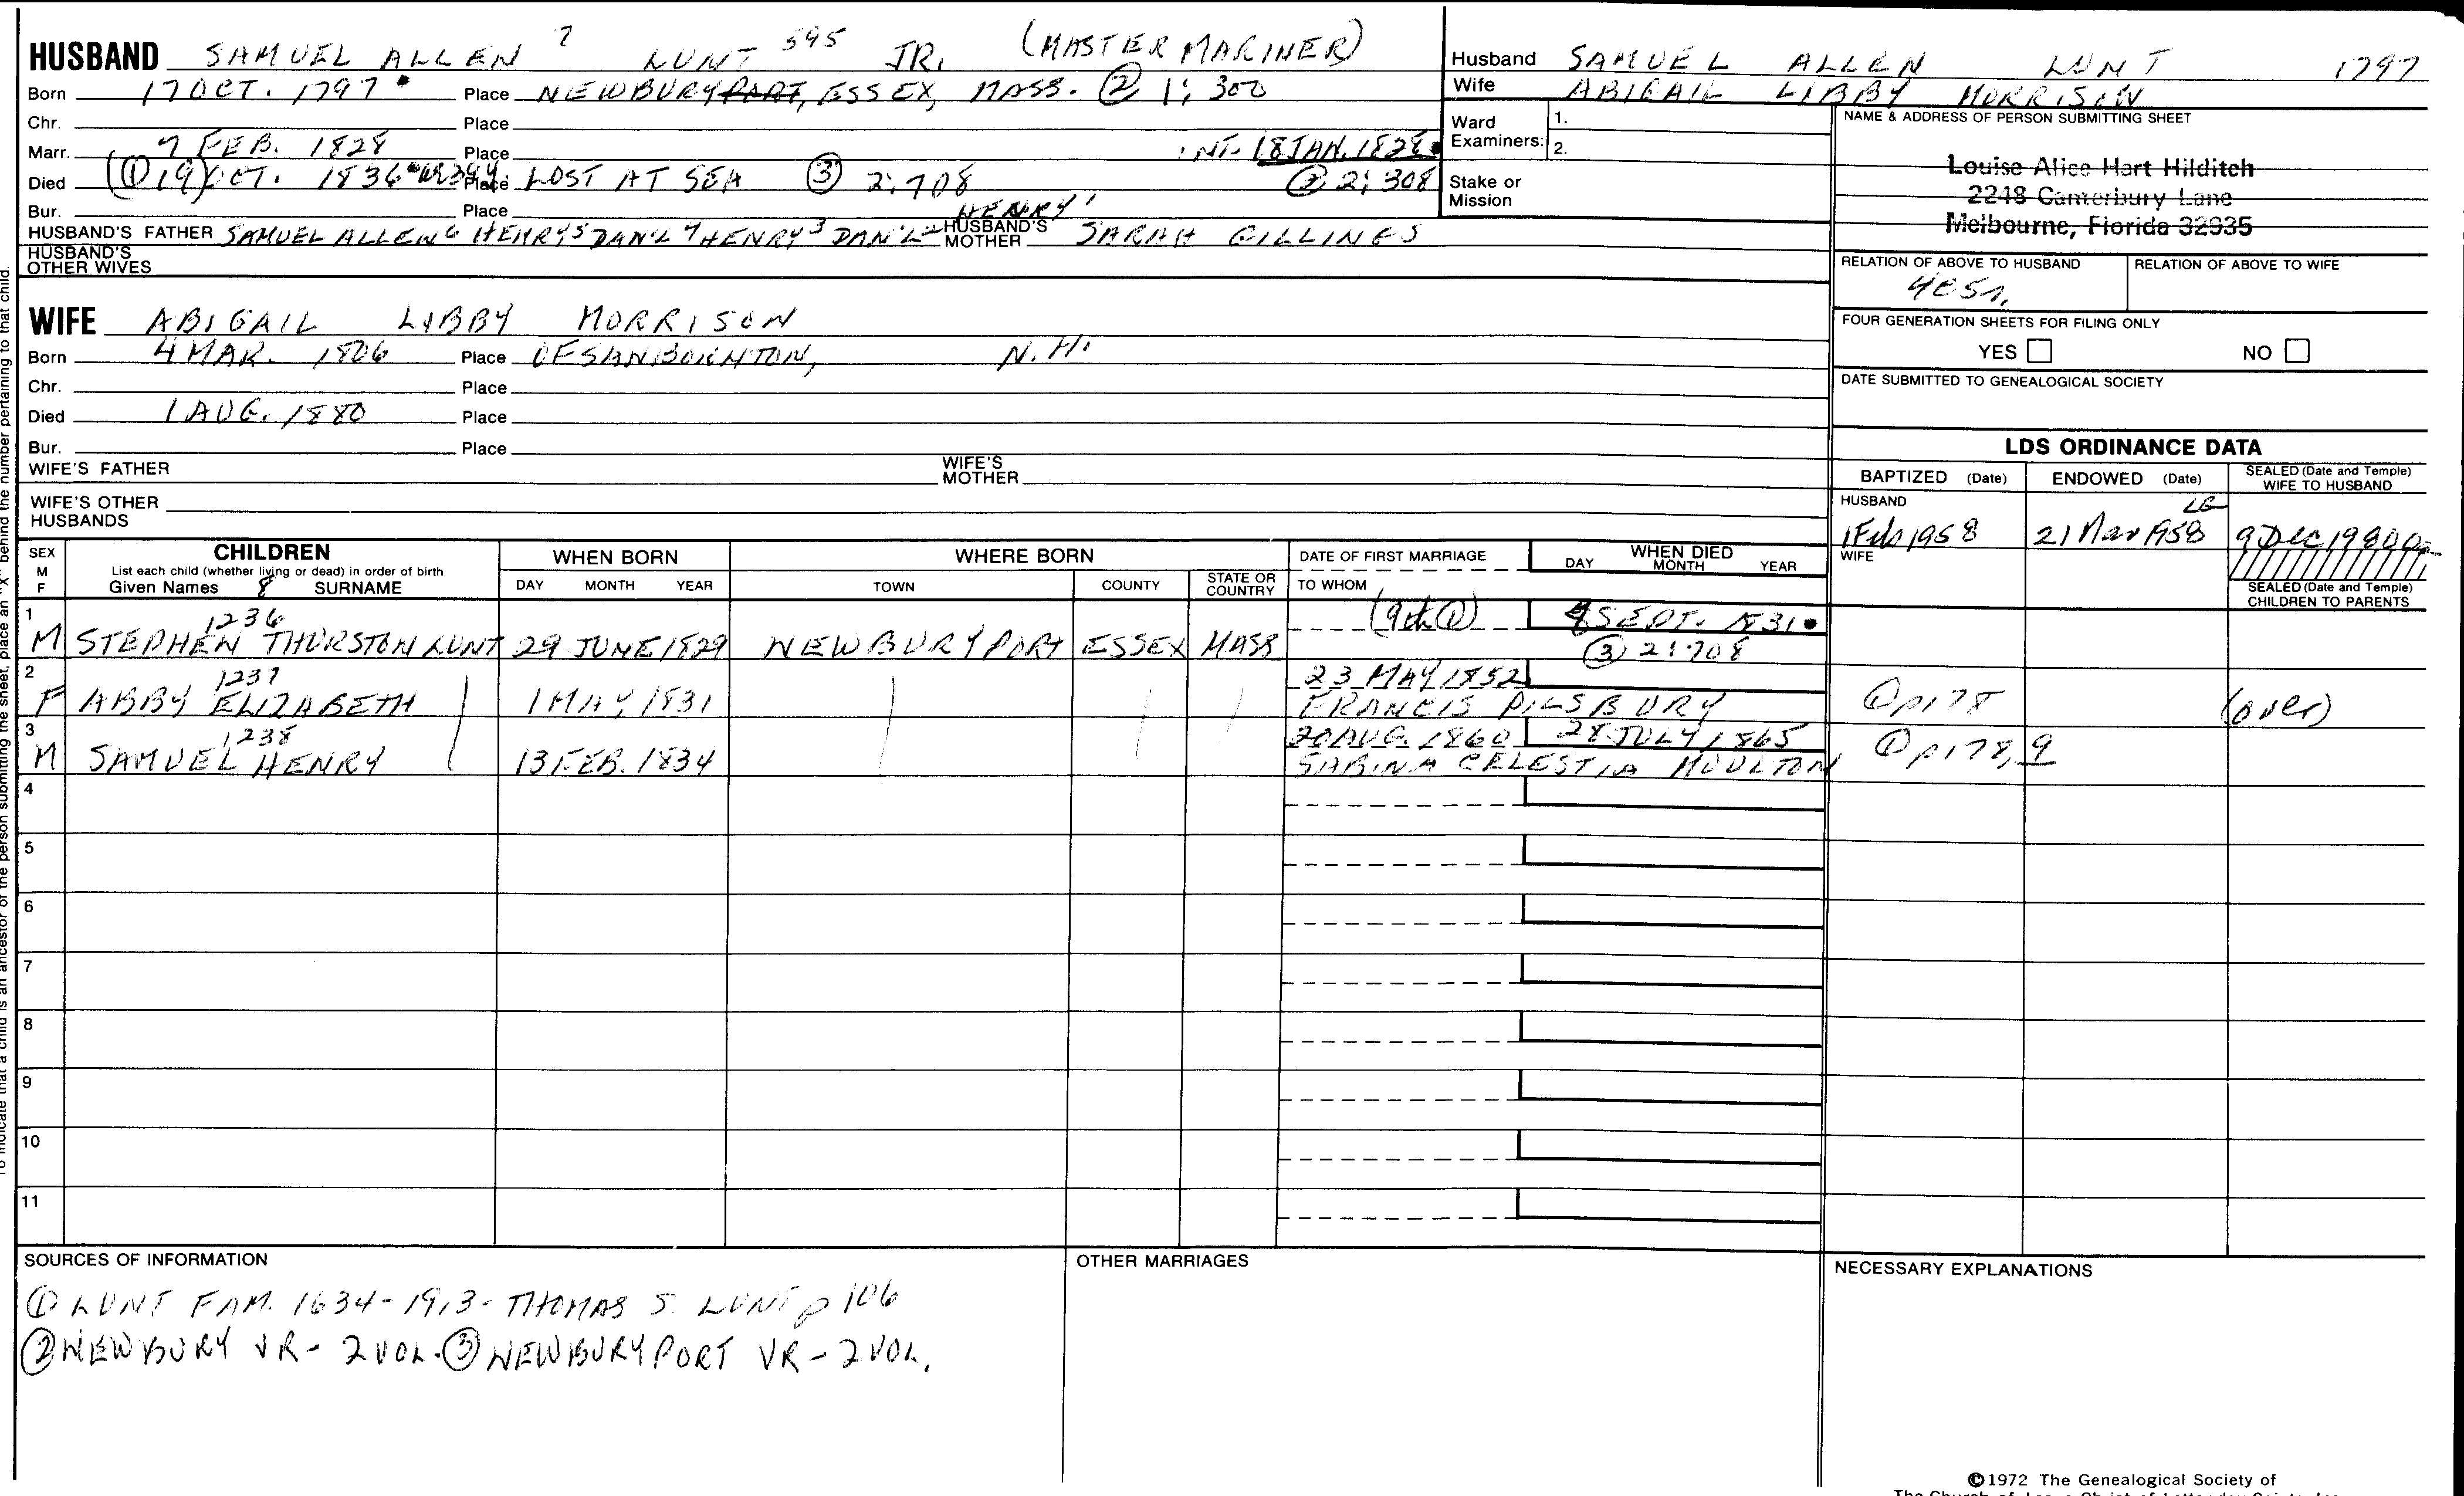 HUSBAND SAMUEL ALLEN 7 LUNT 595 JR. (MASTER MARINER)
Born 17 OCT. 1797 Place NEWBURYPORT, ESSEX, MASS. ② 1; 300
Chr. Place
Marr. 7 FEB. 1828 Place INT. 18 JAN. 1828
Died (① 19) OCT. 1836 Place LOST AT SEA ③ 2:708 ② 2; 308
Bur. Place
HUSBAND'S FATHER SAMUEL ALLEN 6 HENRY 5 DAN'L 4 HENRY 3 DAN'L 2 HENRY 1 HUSBAND'S MOTHER SARAH GILLINES
HUSBAND'S OTHER WIVES
WIFE ABIGAIL LIBBY MORRISON
Born 4 MAR. 1806 Place OF SANBORNTON, N.H.
Chr. Place
Died 1 AUG. 1880 Place
Bur. Place
WIFE'S FATHER WIFE'S MOTHER
WIFE'S OTHER HUSBANDS
Husband SAMUEL ALLEN LUNT 1797
Wife ABIGAIL LIBBY MORRISON
Ward Examiners: 1.
2.
Stake or Mission
NAME & ADDRESS OF PERSON SUBMITTING SHEET
Louise Alice Hart Hilditch
2248 Canterbury Lane
Melbourne, Florida 32935
RELATION OF ABOVE TO HUSBAND RELATION OF ABOVE TO WIFE
FOUR GENERATION SHEETS FOR FILING ONLY
YES NO
DATE SUBMITTED TO GENEALOGICAL SOCIETY
LDS ORDINANCE DATA
BAPTIZED (Date) ENDOWED (Date) SEALED (Date and Temple) WIFE TO HUSBAND
HUSBAND
1 Feb 1958 21 Mar 1958 LG 9 Dec 1980
WIFE
SEALED (Date and Temple)
CHILDREN TO PARENTS
SEX M F CHILDREN WHEN BORN WHERE BORN DATE OF FIRST MARRIAGE WHEN DIED
List each child (whether living or dead) in order of birth
Given Names 8 SURNAME DAY MONTH YEAR TOWN COUNTY STATE OR COUNTRY TO WHOM DAY MONTH YEAR
1 M 1236 STEPHEN THURSTON LUNT 29 JUNE 1829 NEWBURYPORT ESSEX MASS SEPT. 1831 ③ 2:708
2 F 1237 ABBY ELIZABETH 1 MAY 1831 23 MAY 1852 FRANCIS PILSBURY ① p178 (over)
3 M 1238 SAMUEL HENRY 13 FEB. 1834 20 AUG. 1860 28 JULY 1865 SABINA CELESTIA MOULTON ① p178, 9
4
5
6
7
8
9
10
11
SOURCES OF INFORMATION
① LUNT FAM. 1634-1913- THOMAS S. LUNT p 106
② NEWBURY VR - 2 VOL. ③ NEWBURYPORT VR - 2 VOL.
OTHER MARRIAGES
NECESSARY EXPLANATIONS
©1972 The Genealogical Society of